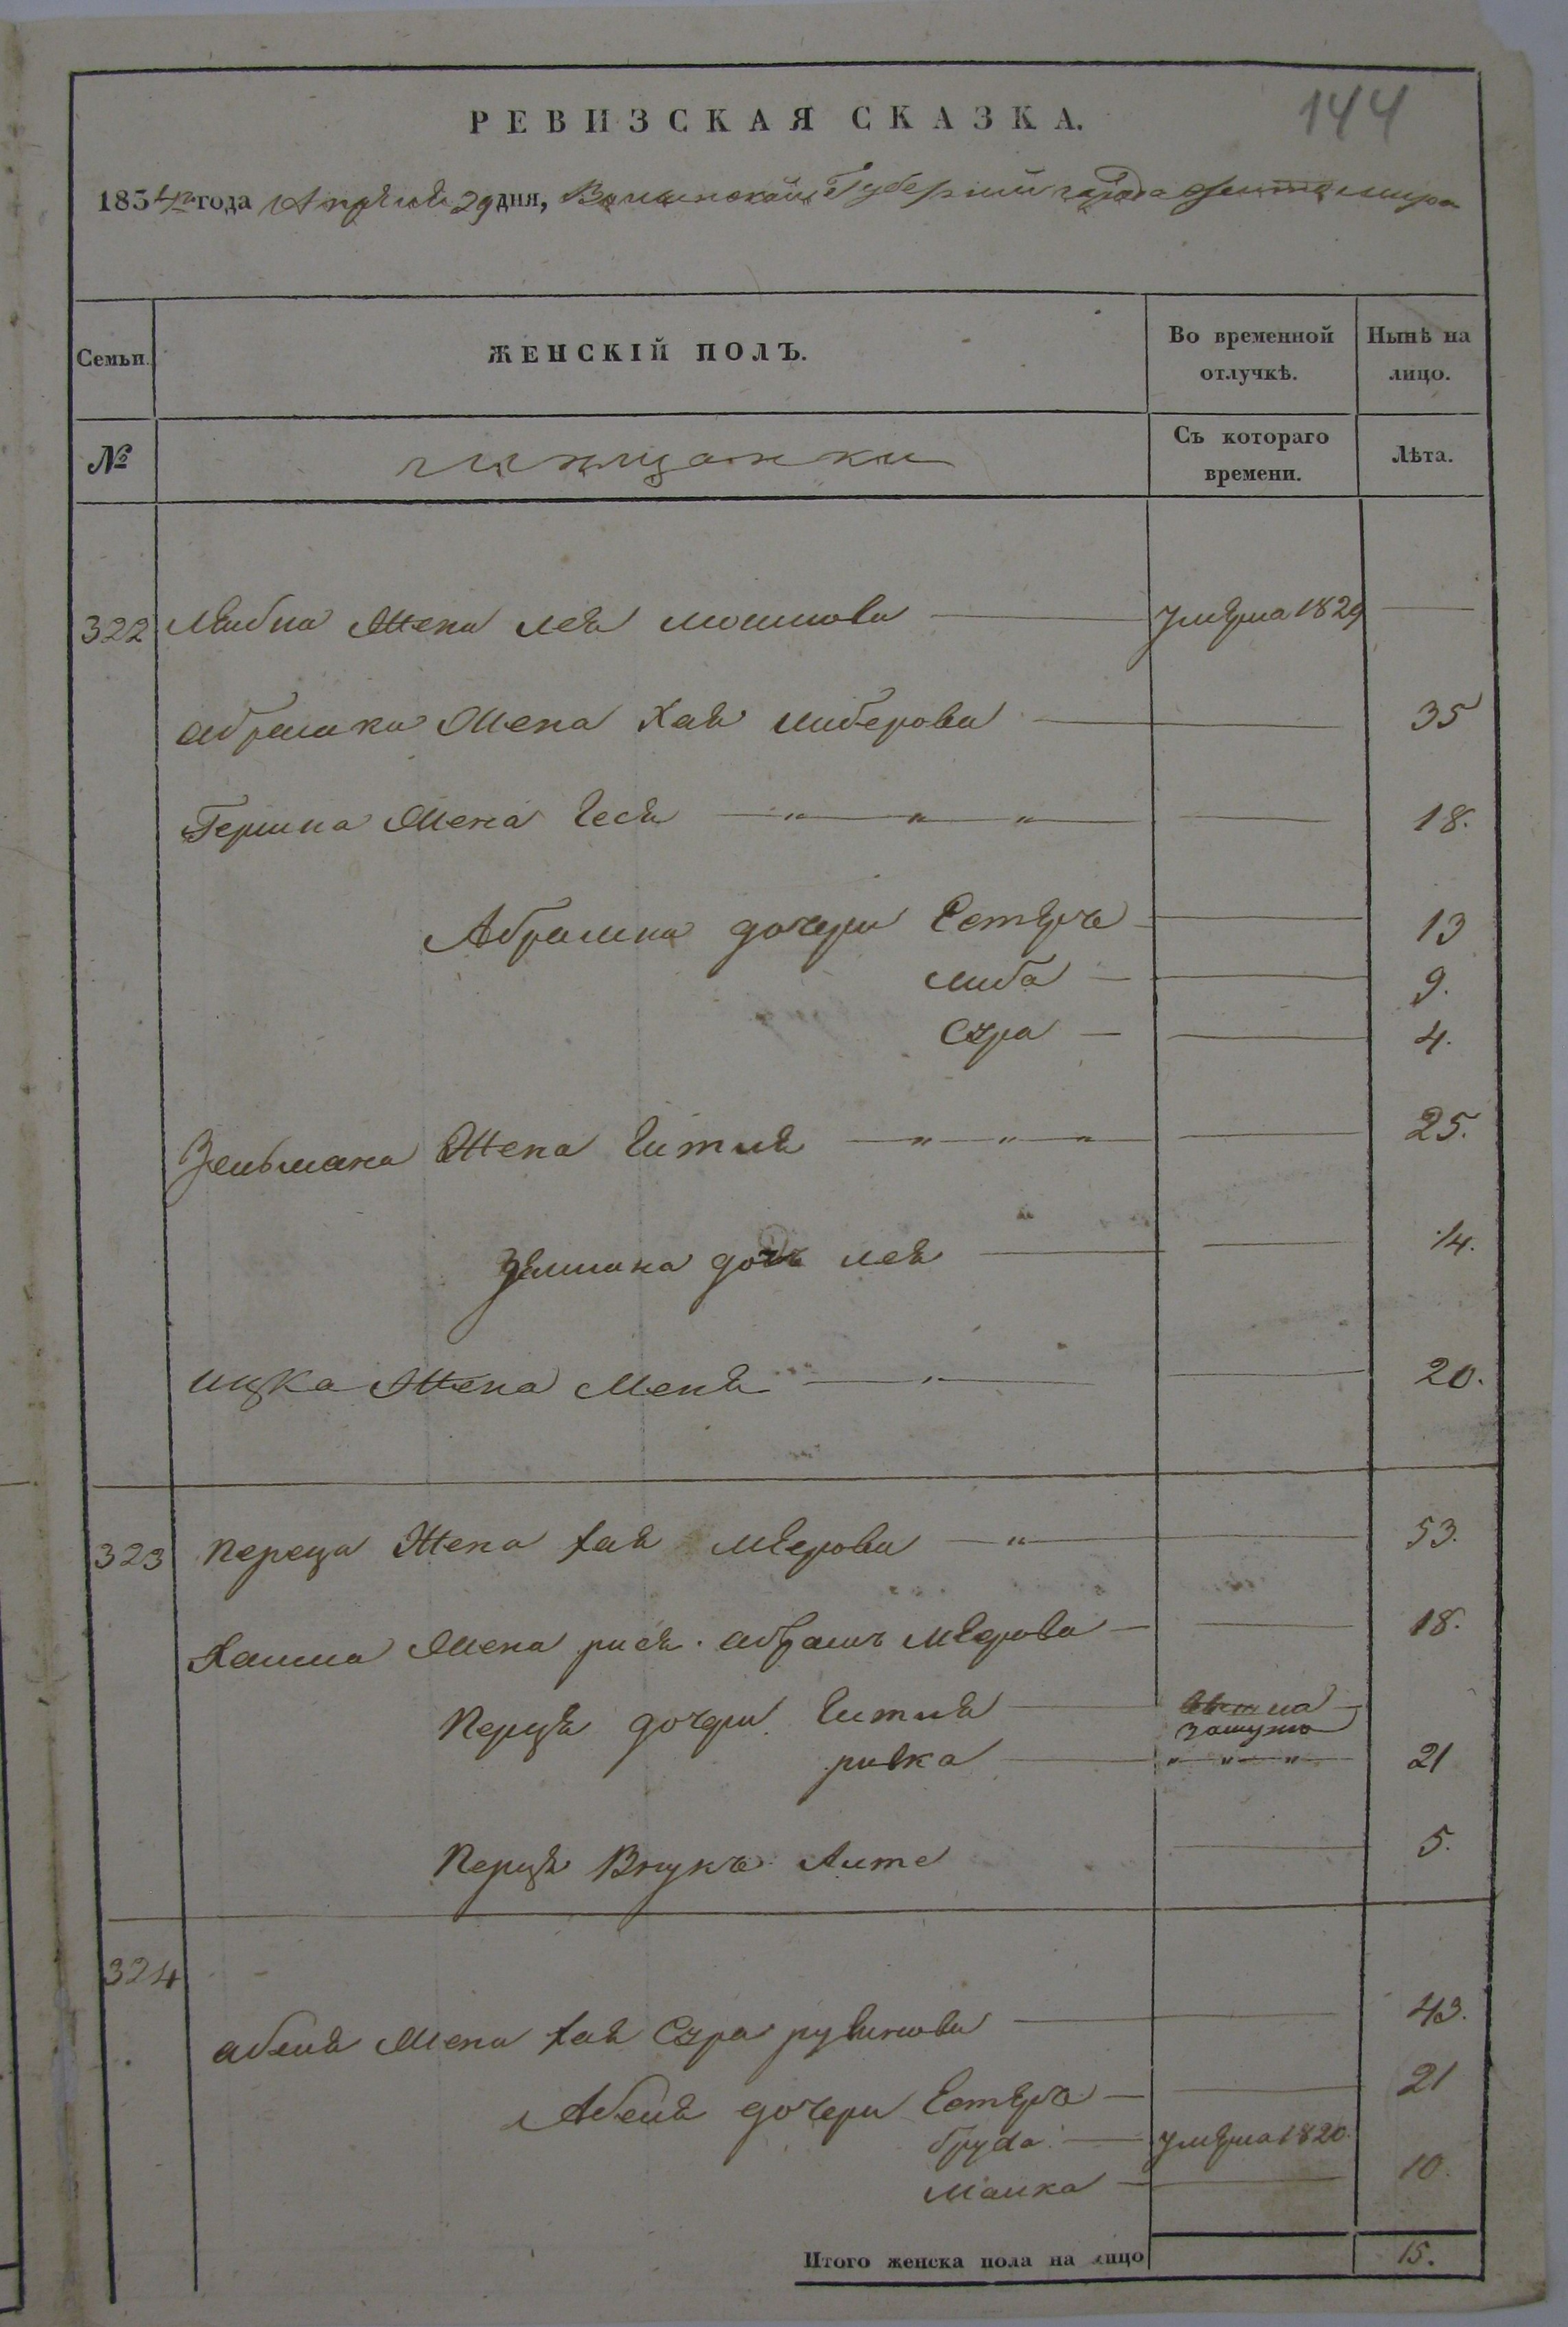 144
РЕВИЗСКАЯ СКАЗКА.
1834го года Апреля 29 дня, Волынской Губернии города Житомира
Семьи. ЖЕНСКІЙ ПОЛЪ. Во временной отлучкѣ. Нынѣ на лицо.
№ мещанки Съ котораго времени. Лѣта.
322 Лейбы Жена Лея Мошкова умерла 1829
Абрамка Жена Хая Либерова 35
Гершка Жена Геся 18.
Абрамка дочери Естеръ 13
Либа 9.
Сура 4.
Зельмана Жена Гитля 25.
Зелмана дочь Лея 14.
Ицка Жена Меня 20.
323 Переца Жена Хая Меерова 53.
Хаима Жена рися Абрамъ Меерова 18.
Перця дочери Гитля замужъ
ривка " " " 21
Перця Внукъ Алте 5.
324
Абеля Жена Хая Сура рувинова 43.
Абеля дочери Естеръ 21
Груда умерла 1820.
Малка 10.
Итого женска пола на лицо 15.